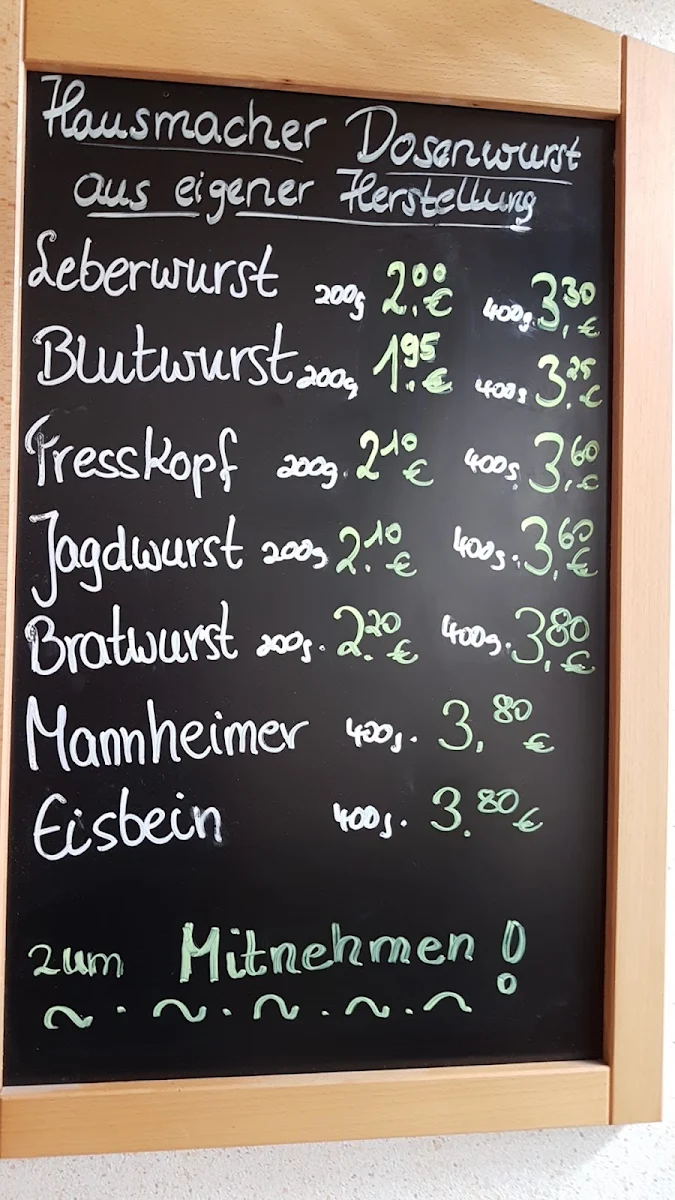 Hausmacher Dosenwurst
aus eigener Herstellung
Leberwurst 200g 2.00€ 400g. 3,30€
Blutwurst 200g 1.95€ 400g 3,25€
Presskopf 200g. 2,10€ 400g. 3,60€
Jagdwurst 200g 2.10€ 400g. 3,60€
Bratwurst 200g. 2.20€ 400g. 3,80€
Mannheimer 400g. 3,80€
Eisbein 400g. 3.80€
zum Mitnehmen!